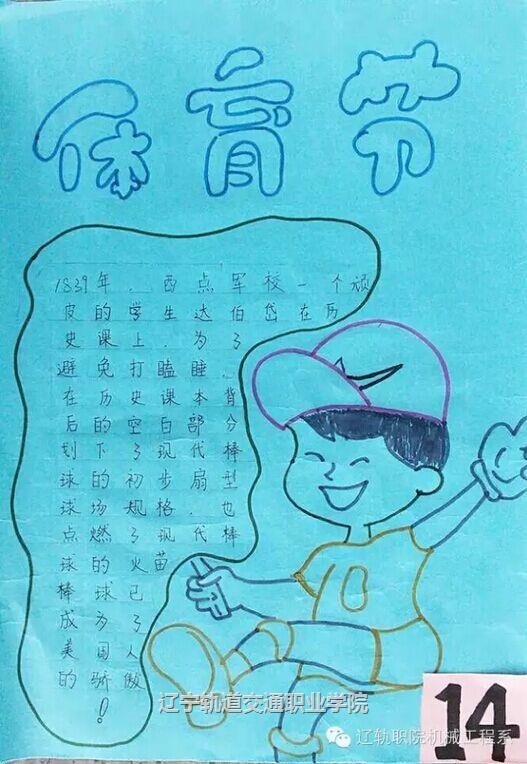 保育节
1839年，西点军校一个顽
皮的学生达伯岱在历
史课上，为了
避免打瞌睡，
在历史课本背
后的空白部分
划下了现代棒
球的初步扇型
球场规格，也
点燃了现代棒
球的火苗
棒球已
成为了
美国人
的骄傲
！
辽宁轨道交通职业学院
辽轨职院机械工程系
14